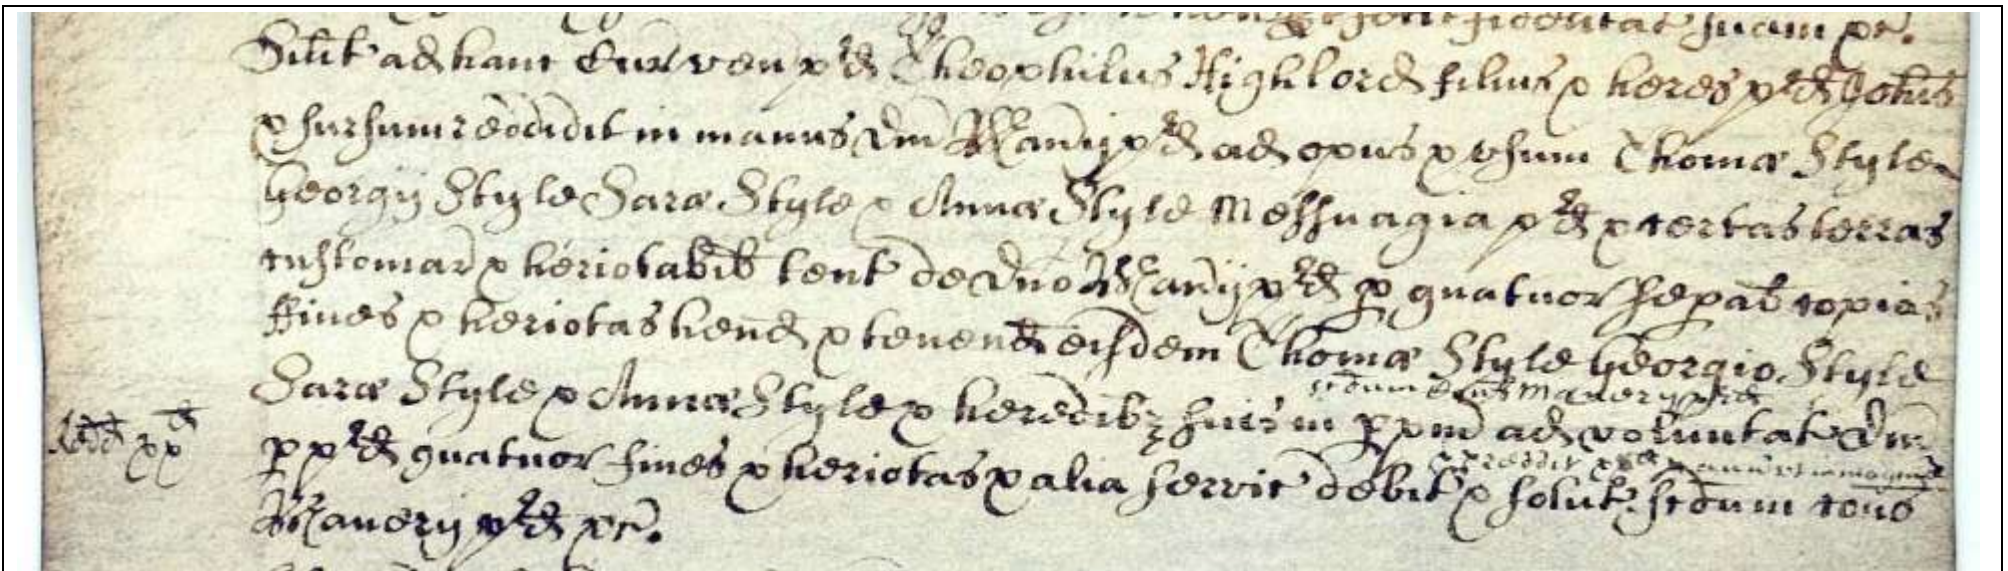 fidelitat suam &c.
Silit ad hanc Cur ven p^rd Theophilus Highlord filius & heres p^rd Johis
& sursum reddidit in manus Dni Manerij p^rd ad opus & usum Thomæ Style
Georgij Style Saræ Style & Annæ Style Messuagia p^rd & certas terras
customar & heriotabil tent de Dno Manerij p^rd p quatuor sepal copias
ffines & heriotas hend & tenend eisdem Thomæ Style Georgio Style
Saræ Style & Annæ Style & heredibz suis in ppm ad voluntat Dni
scdum Manerij p^rd
p p^rd quatuor fines & heriotas & alia servic debit & solut scdum cons
Manerij p^rd &c.
xx^d